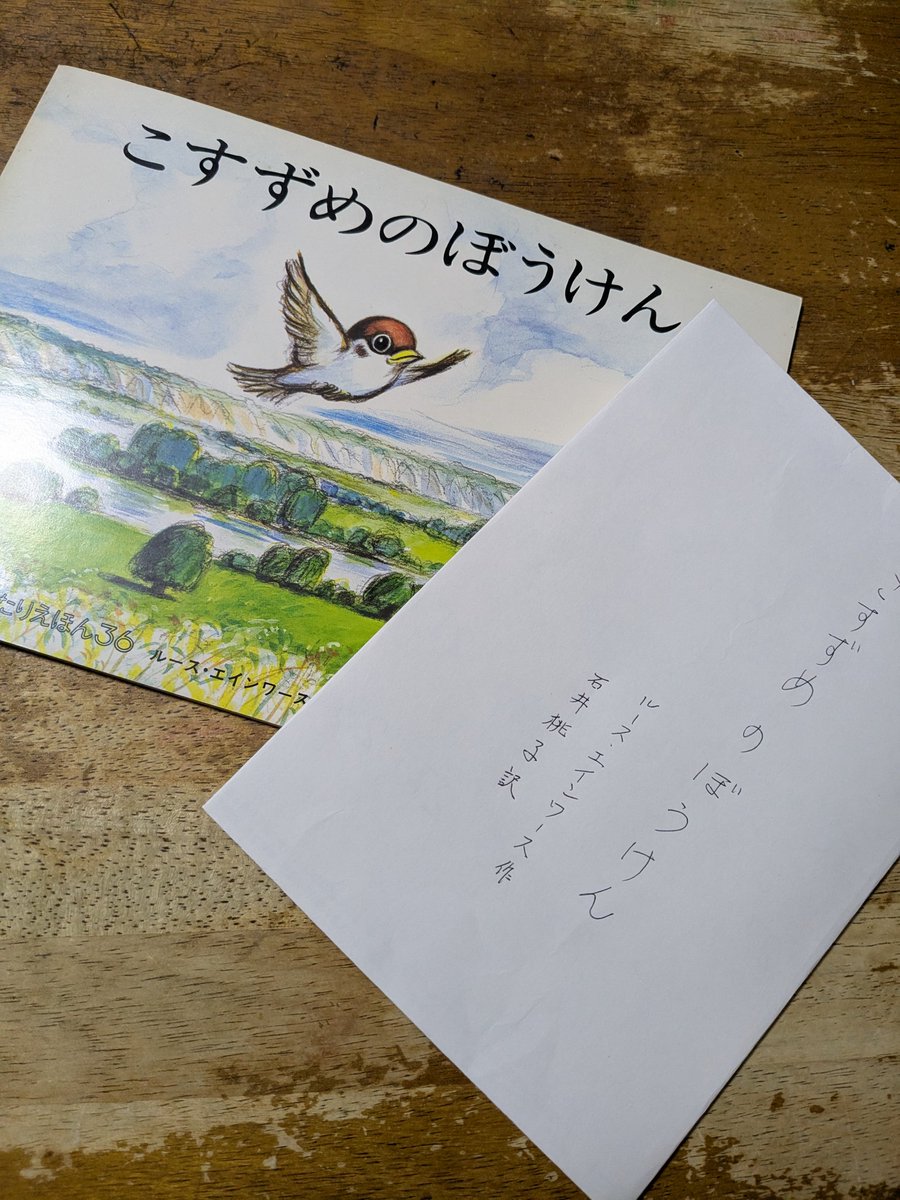 こすずめのぼうけん
たりえほん36
ルース・エインワース
こすずめのぼうけん
ルース・エインワース作
石井桃子訳